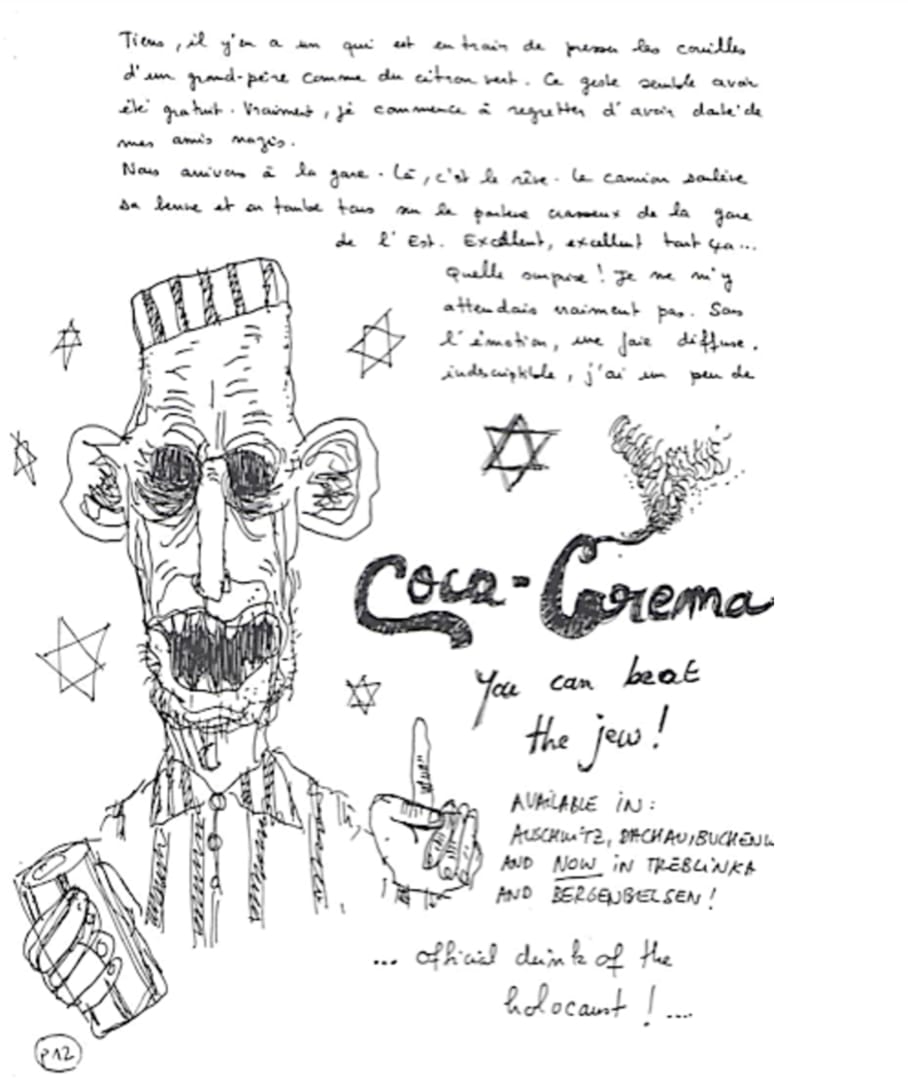 Tiens, il y'en a un qui est en train de presser les couilles
d'un grand-père comme du citron vert. Ce geste semble avoir
été gratuit. Vraiment, je commence à regretter d'avoir daté de
mes amis nazis.
Nous arrivons à la gare. Là, c'est le rêve. Le camion soulève
sa benne et on tombe tous sur le parterre crasseux de la gare
de l'Est. Excellent, excellent tout ça...
Quelle surprise ! Je ne m'y
attendais vraiment pas. Sans
l'émotion, une joie diffuse,
, j'ai un peu de
Coca-Crema
You can beat
the jew !
AVAILABLE IN :
AUSCHWITZ, DACHAU, BUCHENW
AND NOW IN TREBLINKA
AND BERGENBELSEN !
... official drink of the
holocaust ! ...
P12